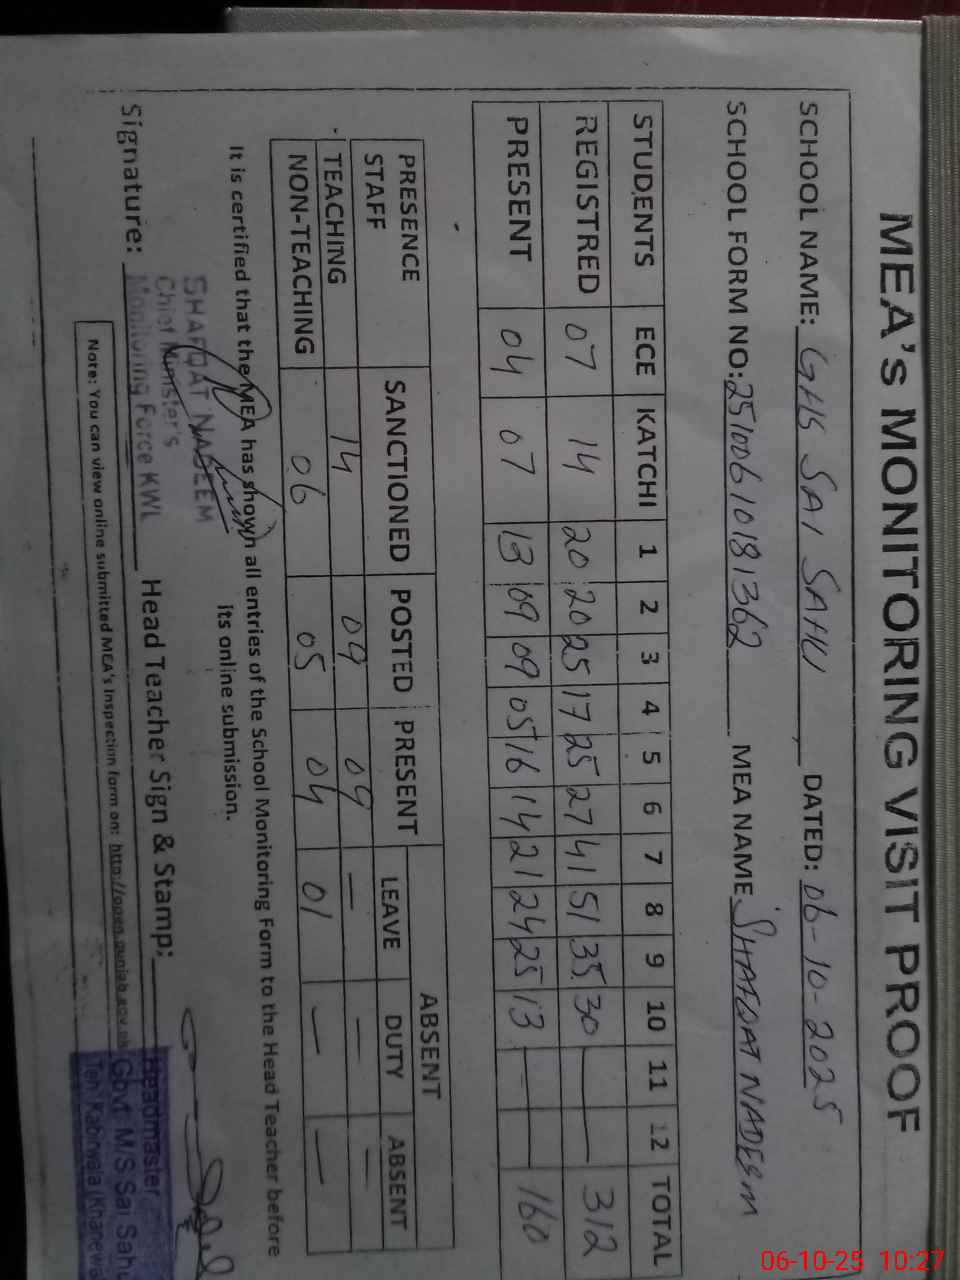 MEA's MONITORING VISIT PROOF
SCHOOL NAME: GHS SAI SAHU DATED: 06-10-2025
SCHOOL FORM NO: 25100610181362 MEA NAME: SHAFQAT NADEEM
STUDENTS ECE KATCHI 1 2 3 4 5 6 7 8 9 10 11 12 TOTAL
REGISTRED 07 14 20 20 25 17 25 27 41 51 35 30 — — 312
PRESENT 04 07 13 09 09 05 16 14 21 24 25 13 — — 160
PRESENCE STAFF SANCTIONED POSTED PRESENT ABSENT
LEAVE DUTY ABSENT
TEACHING 14 09 09 — — —
NON-TEACHING 06 05 04 01 — —
It is certified that the MEA has shown all entries of the School Monitoring Form to the Head Teacher before
its online submission.
SHAFQAT NADEEM
Chief Minister's
Monitoring Force KWL
Signature: Head Teacher Sign & Stamp:
Headmaster
Govt. M/S Sai Sahu
Teh Kabirwala (Khanewal
Note: You can view online submitted MEA's Inspection form on: http://open.punjab.gov.pk
06-10-25 10:27